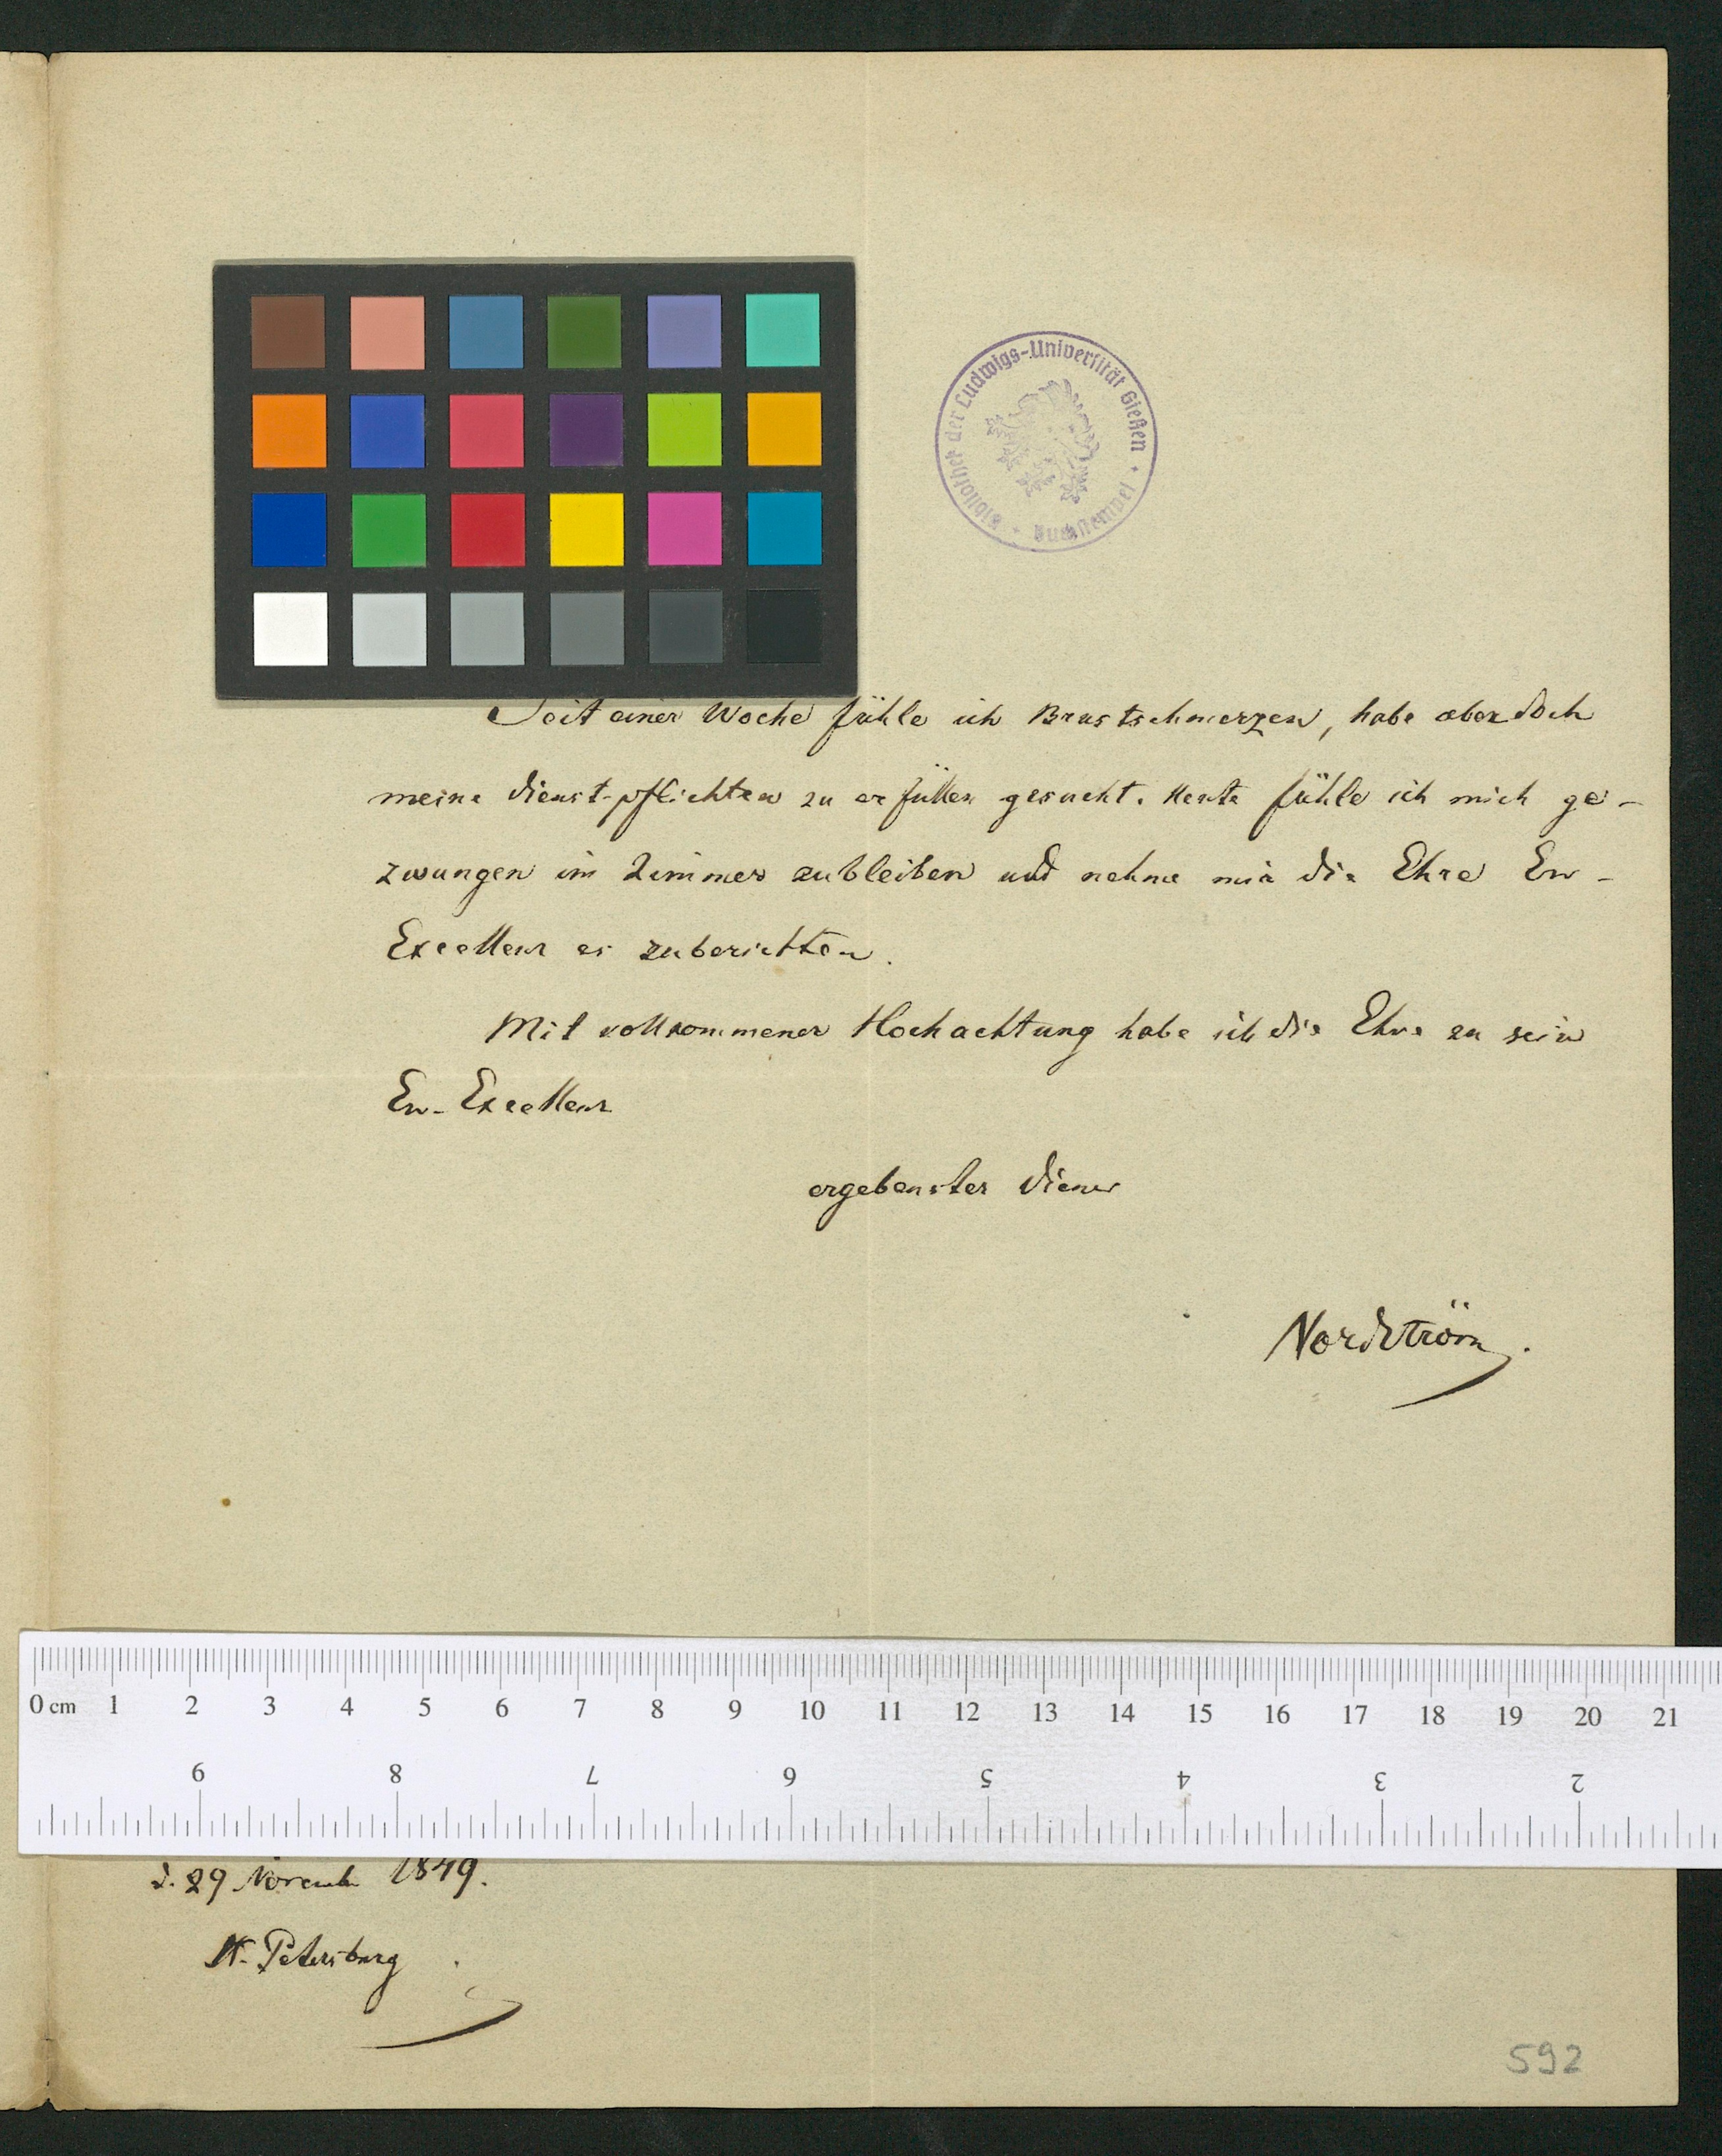 Bibliothek der Ludwigs-Universität Gießen * Buchstempel *
Seit einer Woche fühle ich Brustschmerzen, habe aber doch
meine Dienst-pflichten zu erfüllen gesucht. Heute fühle ich mich ge-
zwungen im Zimmer zubleiben und nehme mir die Ehre Ew-
Excellenz es zuberichten.
Mit vollkommener Hochachtung habe ich die Ehre zu sein
Ew- Excellenz
ergebenster Diener
Nordström.
0 cm 1 2 3 4 5 6 7 8 9 10 11 12 13 14 15 16 17 18 19 20 21
9 8 7 6 5 4 3 2
d. 29 November 1849.
St. Petersburg
592